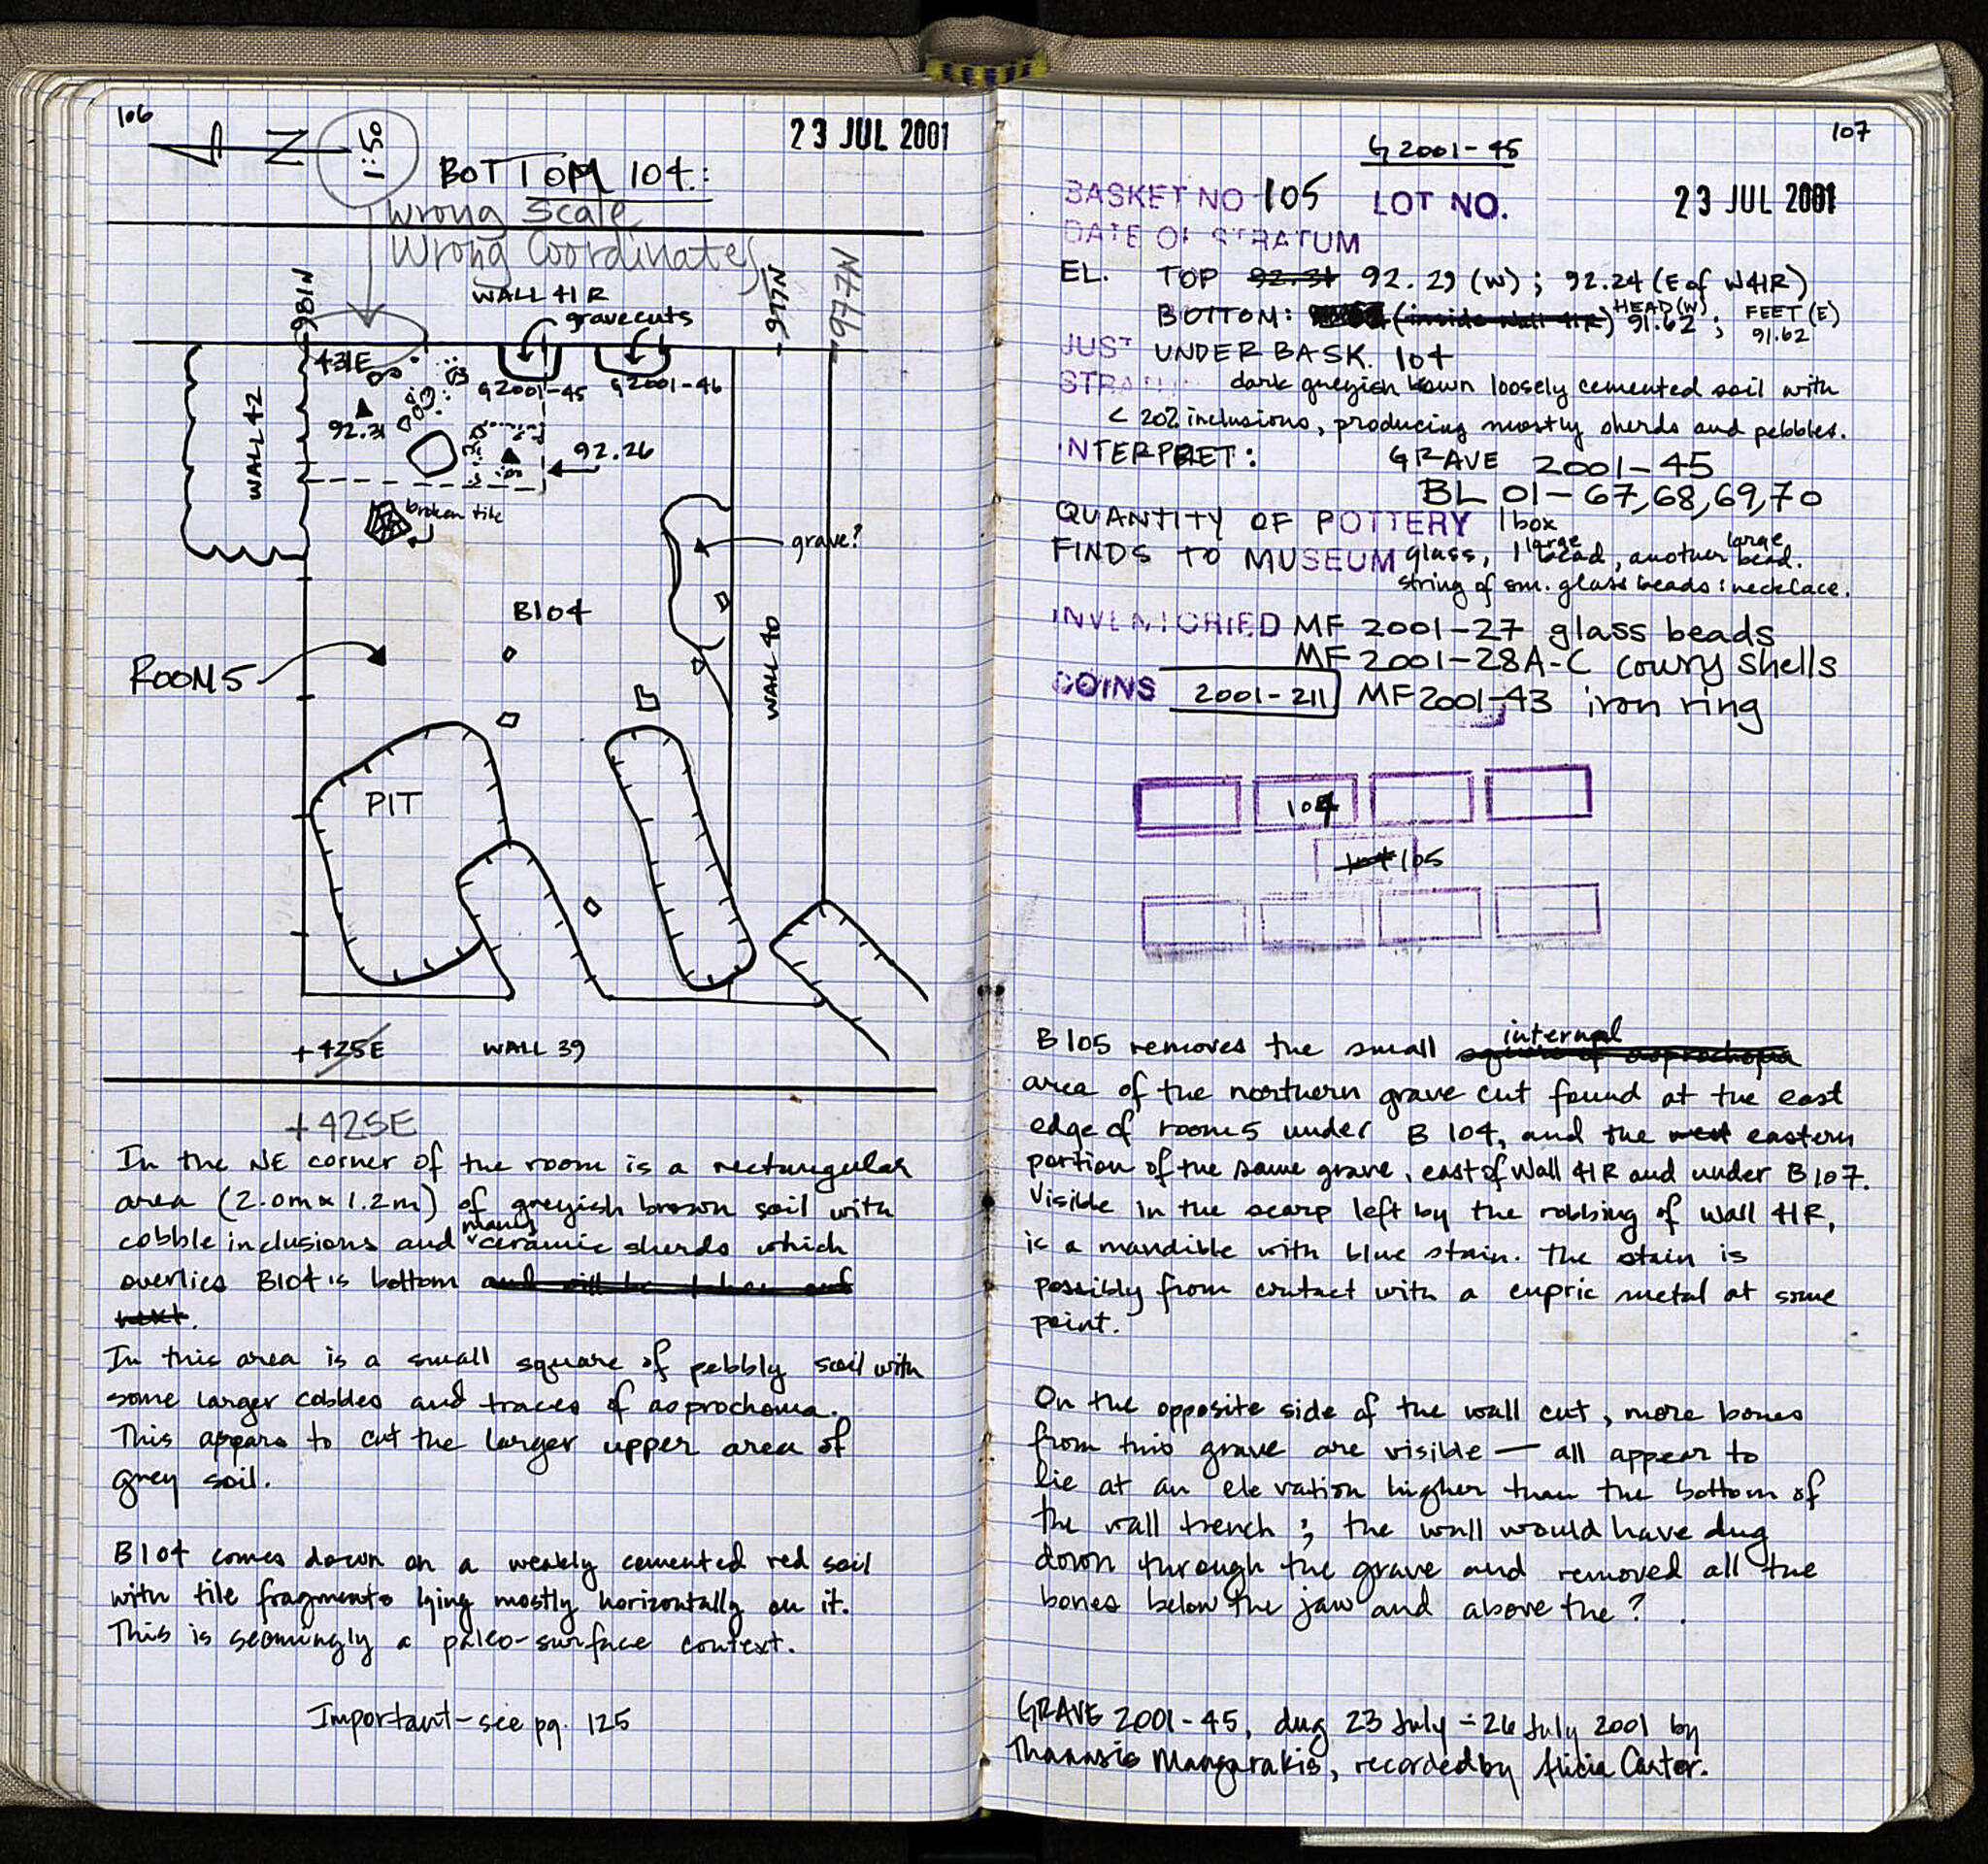 106
N
1:50
23 JUL 2001
BOTTOM 104:
Wrong Scale
Wrong Coordinates
981N
977N
977N
WALL 41R
grave cuts
431E
G2001-45
G2001-46
WALL 42
92.31
92.26
broken tile
grave?
B104
ROOM 5
WALL 40
PIT
+425E
WALL 39
+425E
In the NE corner of the room is a rectangular
area (2.0m x 1.2m) of greyish brown soil with
cobble inclusions and many ceramic sherds which
overlies B104's bottom and will be taken out
next.
In this area is a small square of pebbly soil with
some larger cobbles and traces of asprochoma.
This appears to cut the larger upper area of
grey soil.
B104 comes down on a weakly cemented red soil
with tile fragments lying mostly horizontally on it.
This is seemingly a paleo-surface context.
Important - see pg. 125
107
G2001-45
BASKET NO 105 LOT NO.
23 JUL 2001
DATE OF STRATUM
EL. TOP 92.31 92.29 (W); 92.24 (E of W41R)
BOTTOM: (inside wall 41R) HEAD (W) 91.62; FEET (E) 91.62
JUST UNDER BASK. 104
STRATUM dark greyish brown loosely cemented soil with
< 20% inclusions, producing mostly sherds and pebbles.
INTERPRET: GRAVE 2001-45
BL 01-67,68,69,70
QUANTITY OF POTTERY 1 box
FINDS TO MUSEUM glass, 1 large bead, another large bead.
string of sm. glass beads: necklace.
INVENTORIED MF 2001-27 glass beads
MF 2001-28A-C cowry shells
COINS 2001-211 MF2001-43 iron ring
104
104 105
B105 removes the small square of asprochoma internal
area of the northern grave cut found at the east
edge of room 5 under B 104, and the west eastern
portion of the same grave, east of Wall 41R and under B107.
Visible in the scarp left by the robbing of Wall 41R,
is a mandible with blue stain. The stain is
possibly from contact with a cupric metal at some
point.
On the opposite side of the wall cut, more bones
from this grave are visible — all appear to
lie at an elevation higher than the bottom of
the wall trench; the wall would have dug
down through the grave and removed all the
bones below the jaw and above the ?
GRAVE 2001-45, dug 23 July - 26 July 2001 by
Thanasis Mangarakis, recorded by Alicia Carter.